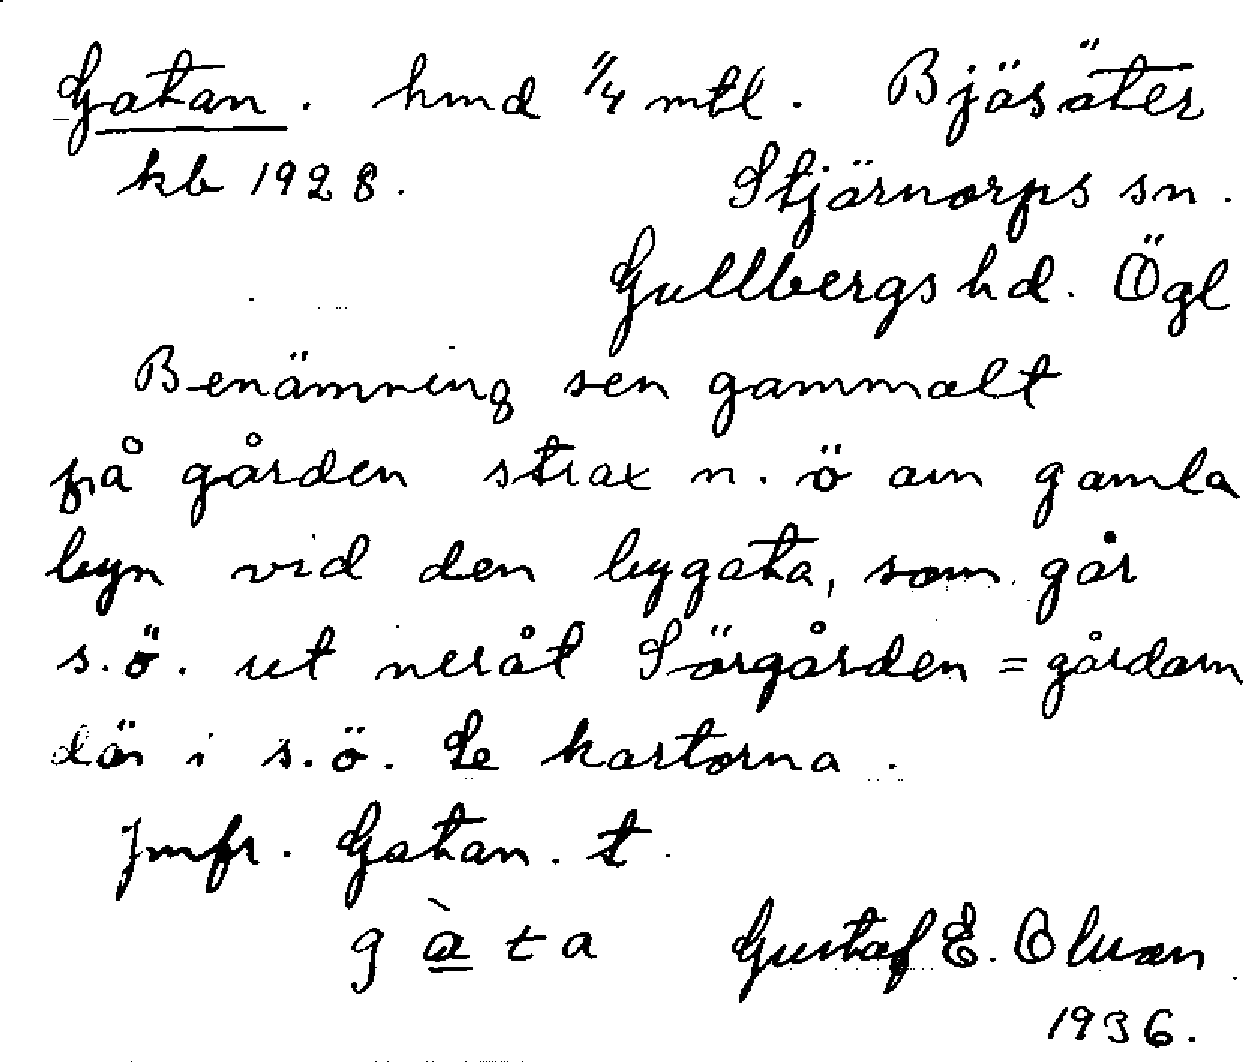 Gatan. hmd 1/4 mtl. Bjäsäter
kb 1928. Stjärnorps sn.
Gullbergs hd. Ögl
Benämning sen gammalt
på gården strax n. ö om gamla
byn vid den bygata, som går
s.ö. ut neråt Sörgården = gårdarn
där i s.ö. Se kartorna.
Jmfr. Gatan. t.
g à t a Gustaf E. Olsson
1936.